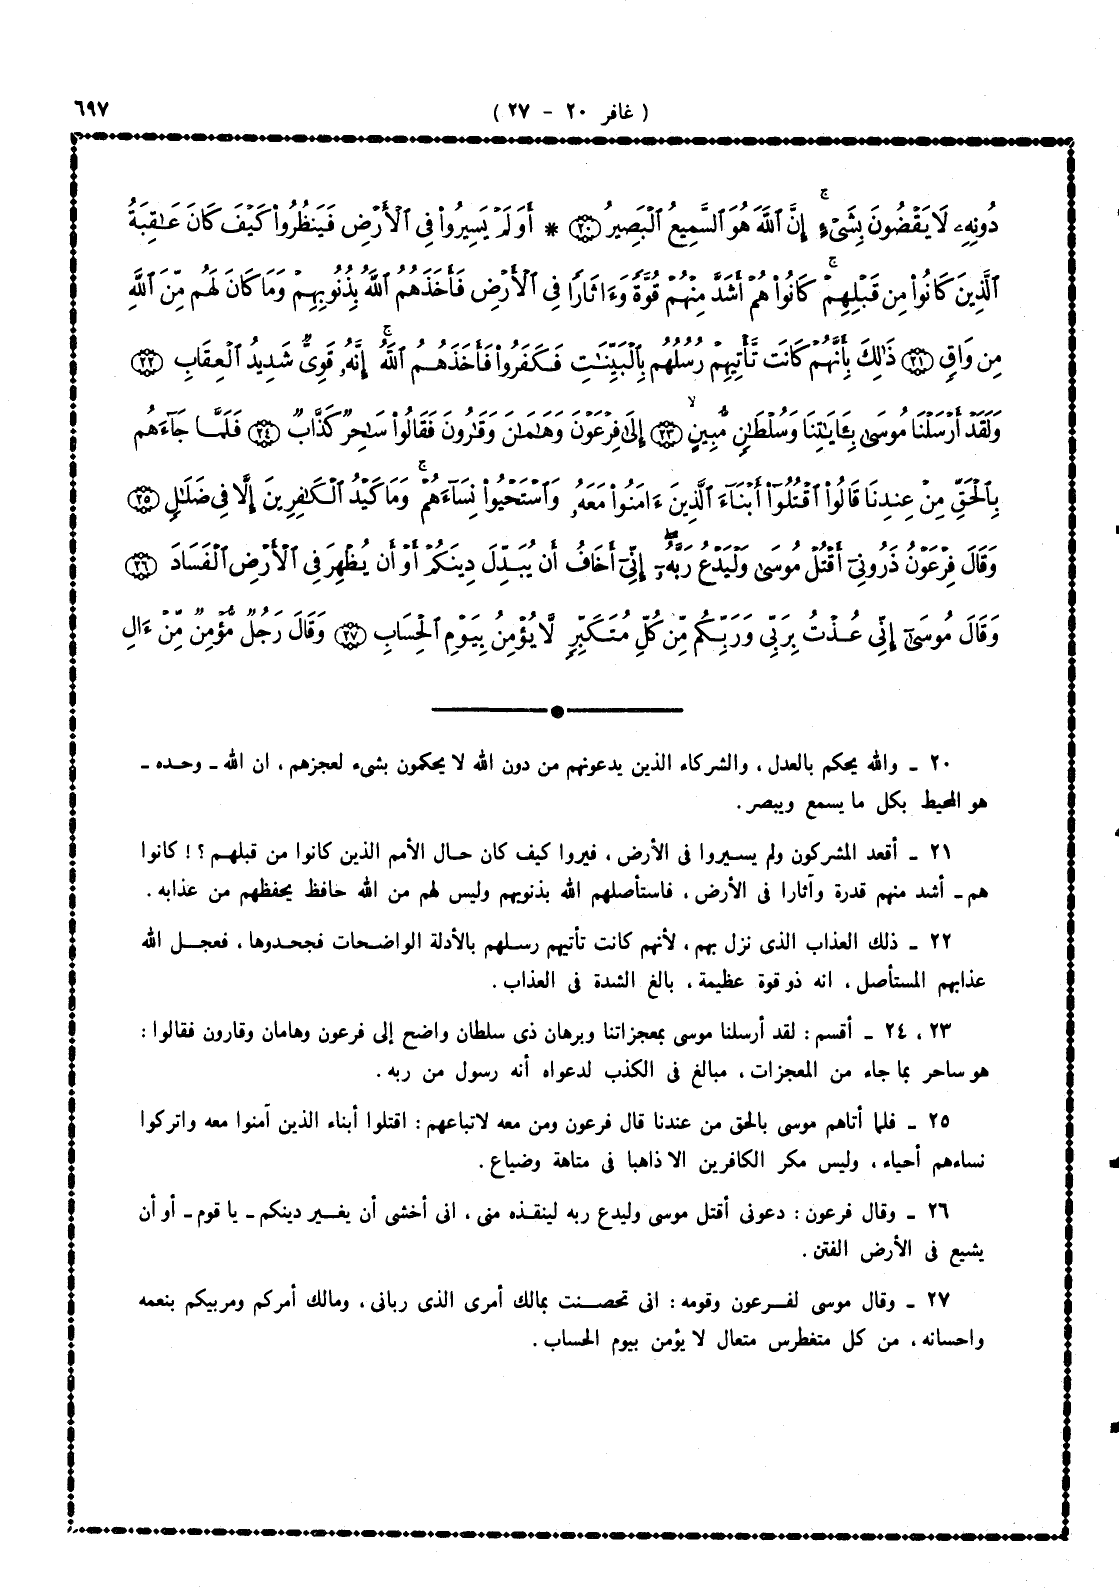 ٦٩٧ ( غافر ٢٠ - ٢٧ )
دُونِهِۦ لَا يَقْضُونَ بِشَىْءٍ ۗ إِنَّ ٱللَّهَ هُوَ ٱلسَّمِيعُ ٱلْبَصِيرُ ﴿٢٠﴾ * أَوَلَمْ يَسِيرُوا۟ فِى ٱلْأَرْضِ فَيَنظُرُوا۟ كَيْفَ كَانَ عَـٰقِبَةُ
ٱلَّذِينَ كَانُوا۟ مِن قَبْلِهِمْ ۚ كَانُوا۟ هُمْ أَشَدَّ مِنْهُمْ قُوَّةً وَءَاثَارًا فِى ٱلْأَرْضِ فَأَخَذَهُمُ ٱللَّهُ بِذُنُوبِهِمْ وَمَا كَانَ لَهُم مِّنَ ٱللَّهِ
مِن وَاقٍ ﴿٢١﴾ ذَٰلِكَ بِأَنَّهُمْ كَانَت تَّأْتِيهِمْ رُسُلُهُم بِٱلْبَيِّنَـٰتِ فَكَفَرُوا۟ فَأَخَذَهُمُ ٱللَّهُ ۚ إِنَّهُۥ قَوِىٌّ شَدِيدُ ٱلْعِقَابِ ﴿٢٢﴾
وَلَقَدْ أَرْسَلْنَا مُوسَىٰ بِـَٔايَـٰتِنَا وَسُلْطَـٰنٍ مُّبِينٍ ﴿٢٣﴾ إِلَىٰ فِرْعَوْنَ وَهَـٰمَـٰنَ وَقَـٰرُونَ فَقَالُوا۟ سَـٰحِرٌ كَذَّابٌ ﴿٢٤﴾ فَلَمَّا جَآءَهُم
بِٱلْحَقِّ مِنْ عِندِنَا قَالُوا۟ ٱقْتُلُوٓا۟ أَبْنَآءَ ٱلَّذِينَ ءَامَنُوا۟ مَعَهُۥ وَٱسْتَحْيُوا۟ نِسَآءَهُمْ ۚ وَمَا كَيْدُ ٱلْكَـٰفِرِينَ إِلَّا فِى ضَلَـٰلٍ ﴿٢٥﴾
وَقَالَ فِرْعَوْنُ ذَرُونِىٓ أَقْتُلْ مُوسَىٰ وَلْيَدْعُ رَبَّهُۥٓ ۖ إِنِّىٓ أَخَافُ أَن يُبَدِّلَ دِينَكُمْ أَوْ أَن يُظْهِرَ فِى ٱلْأَرْضِ ٱلْفَسَادَ ﴿٢٦﴾
وَقَالَ مُوسَىٰٓ إِنِّى عُذْتُ بِرَبِّى وَرَبِّكُم مِّن كُلِّ مُتَكَبِّرٍ لَّا يُؤْمِنُ بِيَوْمِ ٱلْحِسَابِ ﴿٢٧﴾ وَقَالَ رَجُلٌ مُّؤْمِنٌ مِّنْ ءَالِ
٢٠ ـ والله يحكم بالعدل ، والشركاء الذين يدعونهم من دون الله لا يحكمون بشىء لعجزهم ، ان الله ـ وحده ـ
هو المحيط بكل ما يسمع ويبصر .
٢١ ـ أقعد المشركون ولم يسيروا فى الأرض ، فيروا كيف كان حال الأمم الذين كانوا من قبلهم ؟ ! كانوا
هم ـ أشد منهم قدرة وآثارا فى الأرض ، فاستأصلهم الله بذنوبهم وليس لهم من الله حافظ يحفظهم من عذابه .
٢٢ ـ ذلك العذاب الذى نزل بهم ، لأنهم كانت تأتيهم رسلهم بالأدلة الواضحات فجحدوها ، فعجل الله
عذابهم المستأصل ، انه ذو قوة عظيمة ، بالغ الشدة فى العذاب .
٢٣ ، ٢٤ ـ أقسم : لقد أرسلنا موسى بمعجزاتنا وبرهان ذى سلطان واضح إلى فرعون وهامان وقارون فقالوا :
هو ساحر بما جاء من المعجزات ، مبالغ فى الكذب لدعواه أنه رسول من ربه .
٢٥ ـ فلما أتاهم موسى بالحق من عندنا قال فرعون ومن معه لاتباعهم : اقتلوا أبناء الذين آمنوا معه واتركوا
نساءهم أحياء ، وليس مكر الكافرين الا ذاهبا فى متاهة وضياع .
٢٦ ـ وقال فرعون : دعونى أقتل موسى وليدع ربه لينقذه منى ، انى أخشى أن يغير دينكم ـ يا قوم ـ أو أن
يشيع فى الأرض الفتن .
٢٧ ـ وقال موسى لفرعون وقومه : انى تحصنت بمالك أمرى الذى ربانى ، ومالك أمركم ومربيكم بنعمه
واحسانه ، من كل متغطرس متعال لا يؤمن بيوم الحساب .